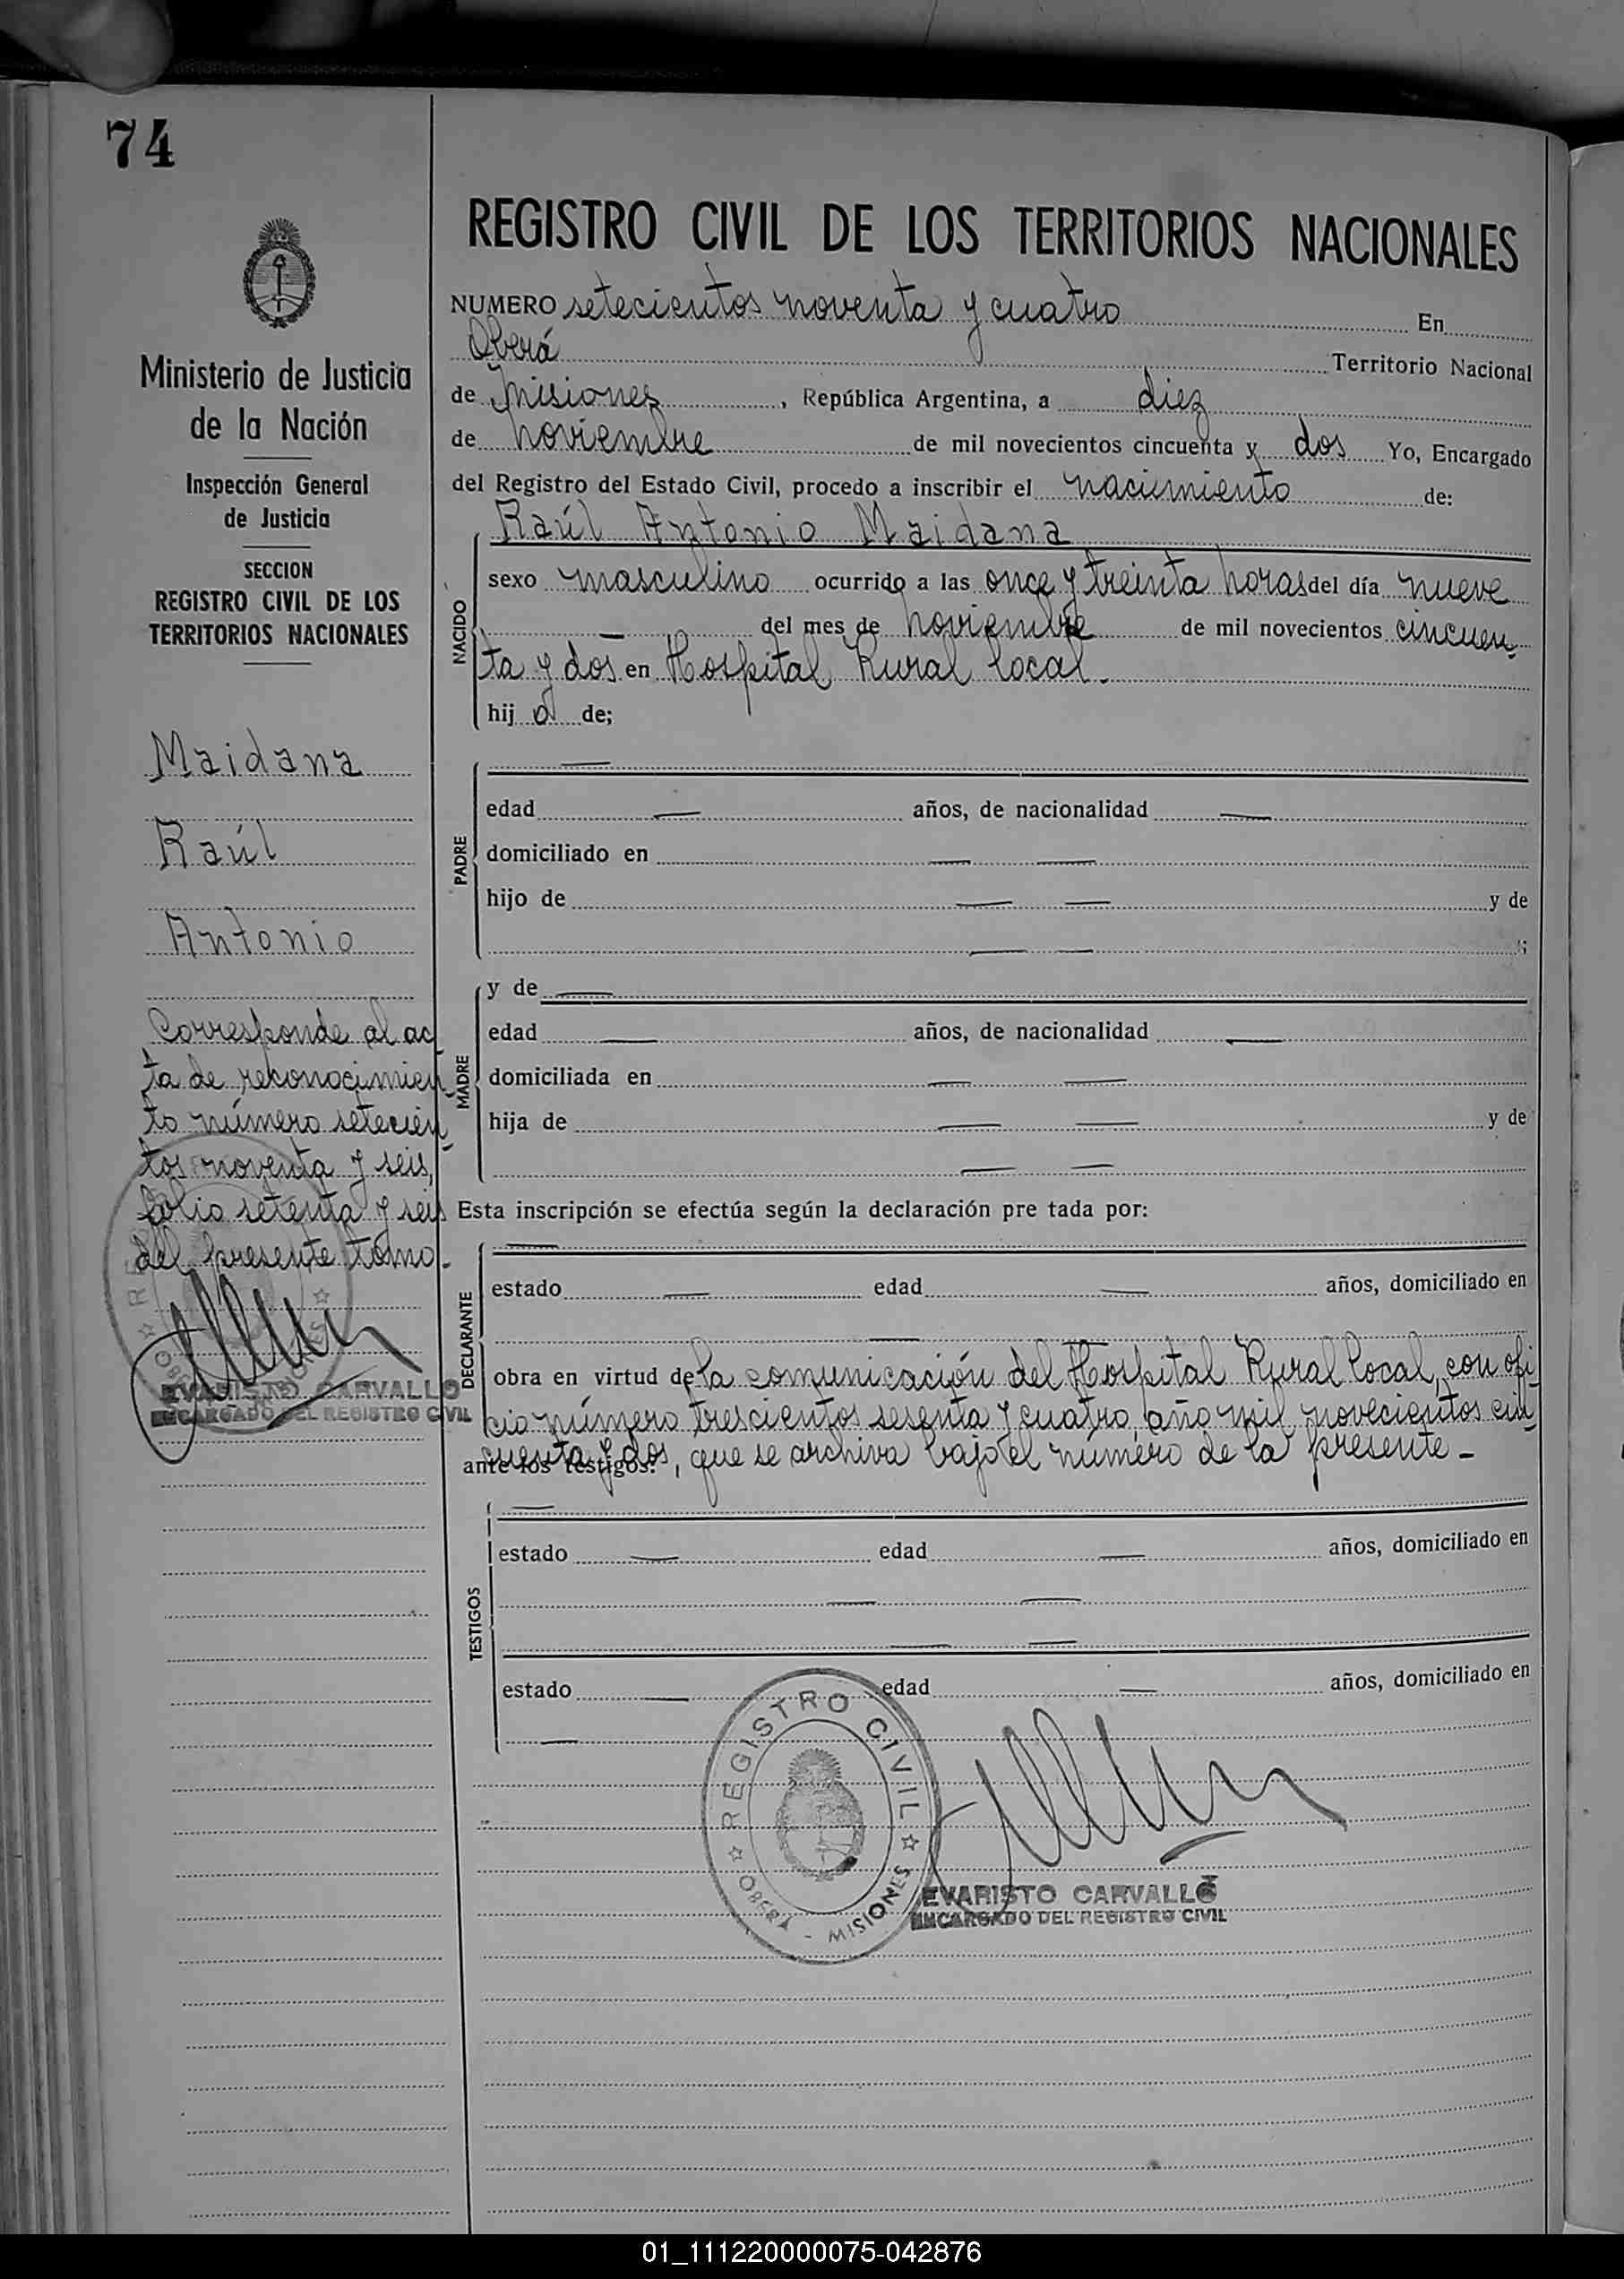 74
Ministerio de Justicia
de la Nación
Inspección General
de Justicia
SECCION
REGISTRO CIVIL DE LOS
TERRITORIOS NACIONALES
Maidana
Raúl
Antonio
Corresponde al ac
ta de reconocimien
to número setecien
tos noventa y seis,
folio setenta y seis
del presente tomo.
EVARISTO CARVALLO
ENCARGADO DEL REGISTRO CIVIL
REGISTRO CIVIL DE LOS TERRITORIOS NACIONALES
NUMERO setecientos noventa y cuatro En
Oberá Territorio Nacional
de Misiones, República Argentina, a diez
de noviembre de mil novecientos cincuenta y dos Yo, Encargado
del Registro del Estado Civil, procedo a inscribir el nacimiento de:
Raúl Antonio Maidana
NACIDO
sexo masculino ocurrido a las once y treinta horas del día nueve
— del mes de noviembre de mil novecientos cincuen
ta y dos en Hospital Rural local.
hij o de;
PADRE
—
edad — años, de nacionalidad —
domiciliado en — —
hijo de — — y de
— — ;
MADRE
y de —
edad — años, de nacionalidad —
domiciliada en — —
hija de — — y de
— —
Esta inscripción se efectúa según la declaración pre tada por:
DECLARANTE
—
estado — edad — años, domiciliado en
—
obra en virtud de la comunicación del Hospital Rural local, con ofi
cio número trescientos sesenta y cuatro año mil novecientos cin
cuenta y dos, que se archiva bajo el número de la presente -
ante los testigos:
TESTIGOS
—
estado — edad — años, domiciliado en
— —
— —
estado — edad — años, domiciliado en
—
REGISTRO CIVIL
OBERÁ - MISIONES
EVARISTO CARVALLO
ENCARGADO DEL REGISTRO CIVIL
01_111220000075-042876